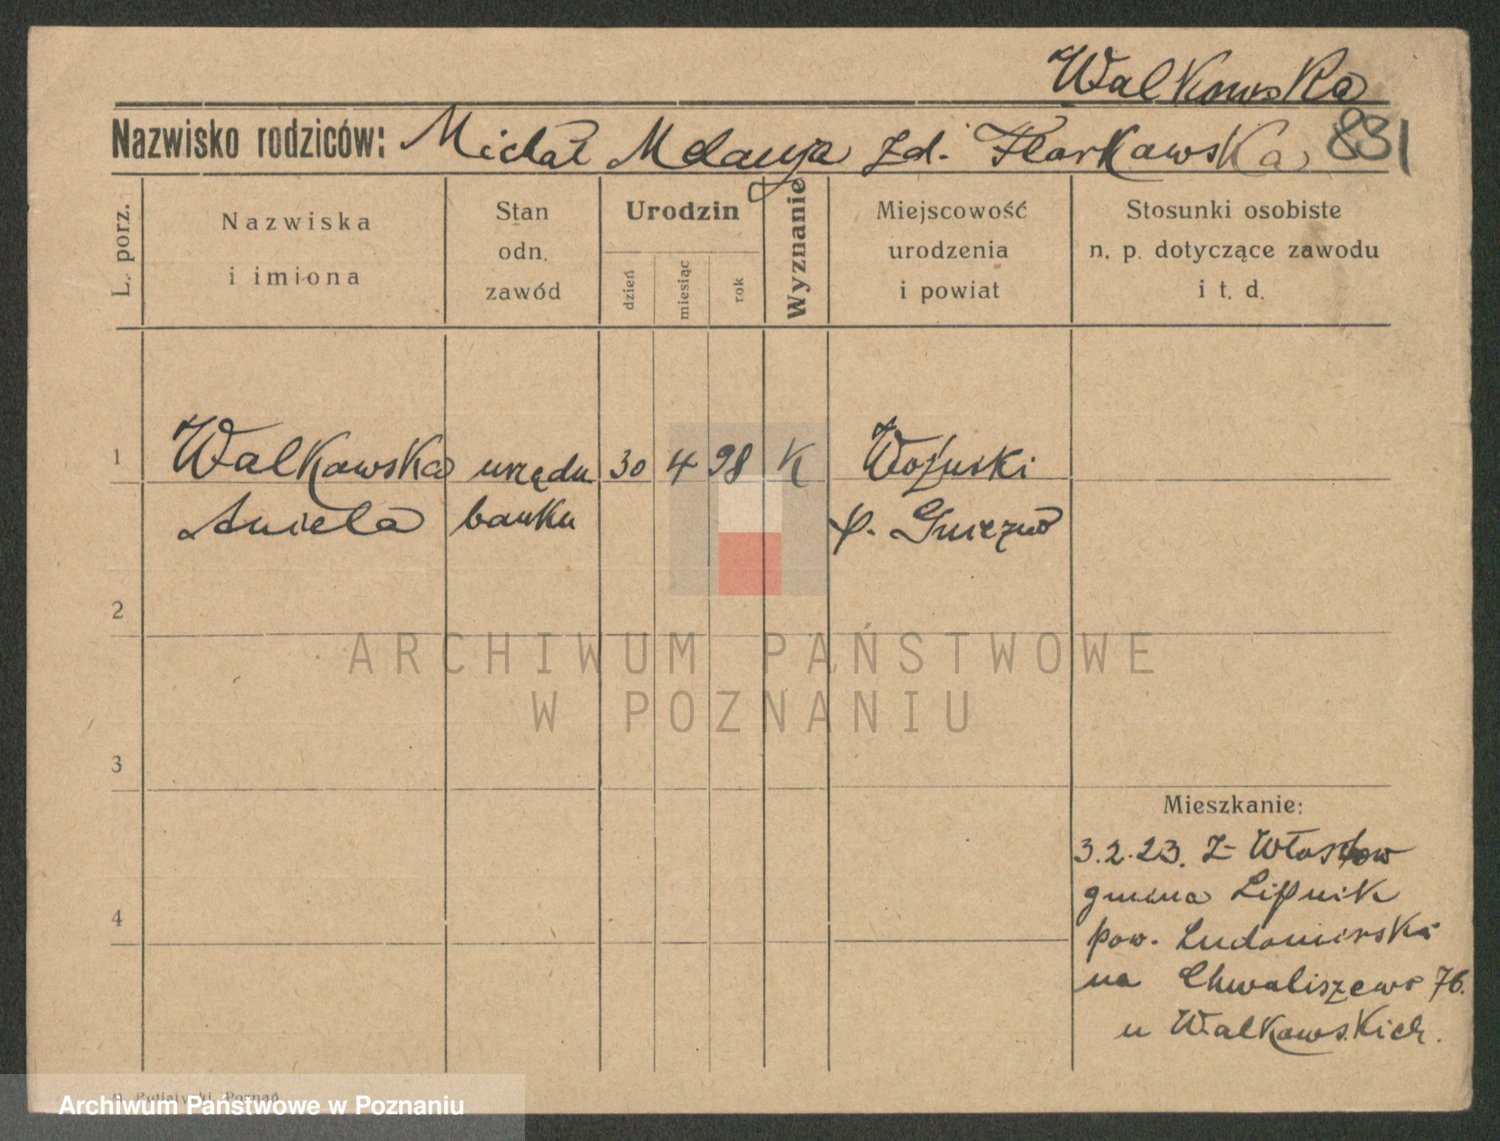 Walkowska
Nazwisko rodziców: Michał Melanja zd. Florkowska 831
L. porz.
Nazwiska
i imiona
Stan
odn.
zawód
Urodzin
dzień
miesiąc
rok
Wyznanie
Miejscowość
urodzenia
i powiat
Stosunki osobiste
n. p. dotyczące zawodu
i t. d.
1 Walkowska urzędn. 30 4 98 K
Aniela banku p. Gniezno
2
ARCHIWUM PAŃSTWOWE
W POZNANIU
3
Mieszkanie:
3.2.23. Z Włostow
gmina Lipnik
4
pow. Sudomierski
na Chwaliszewo 76.
u Walkowskich.
Poznań
Archiwum Państwowe w Poznaniu